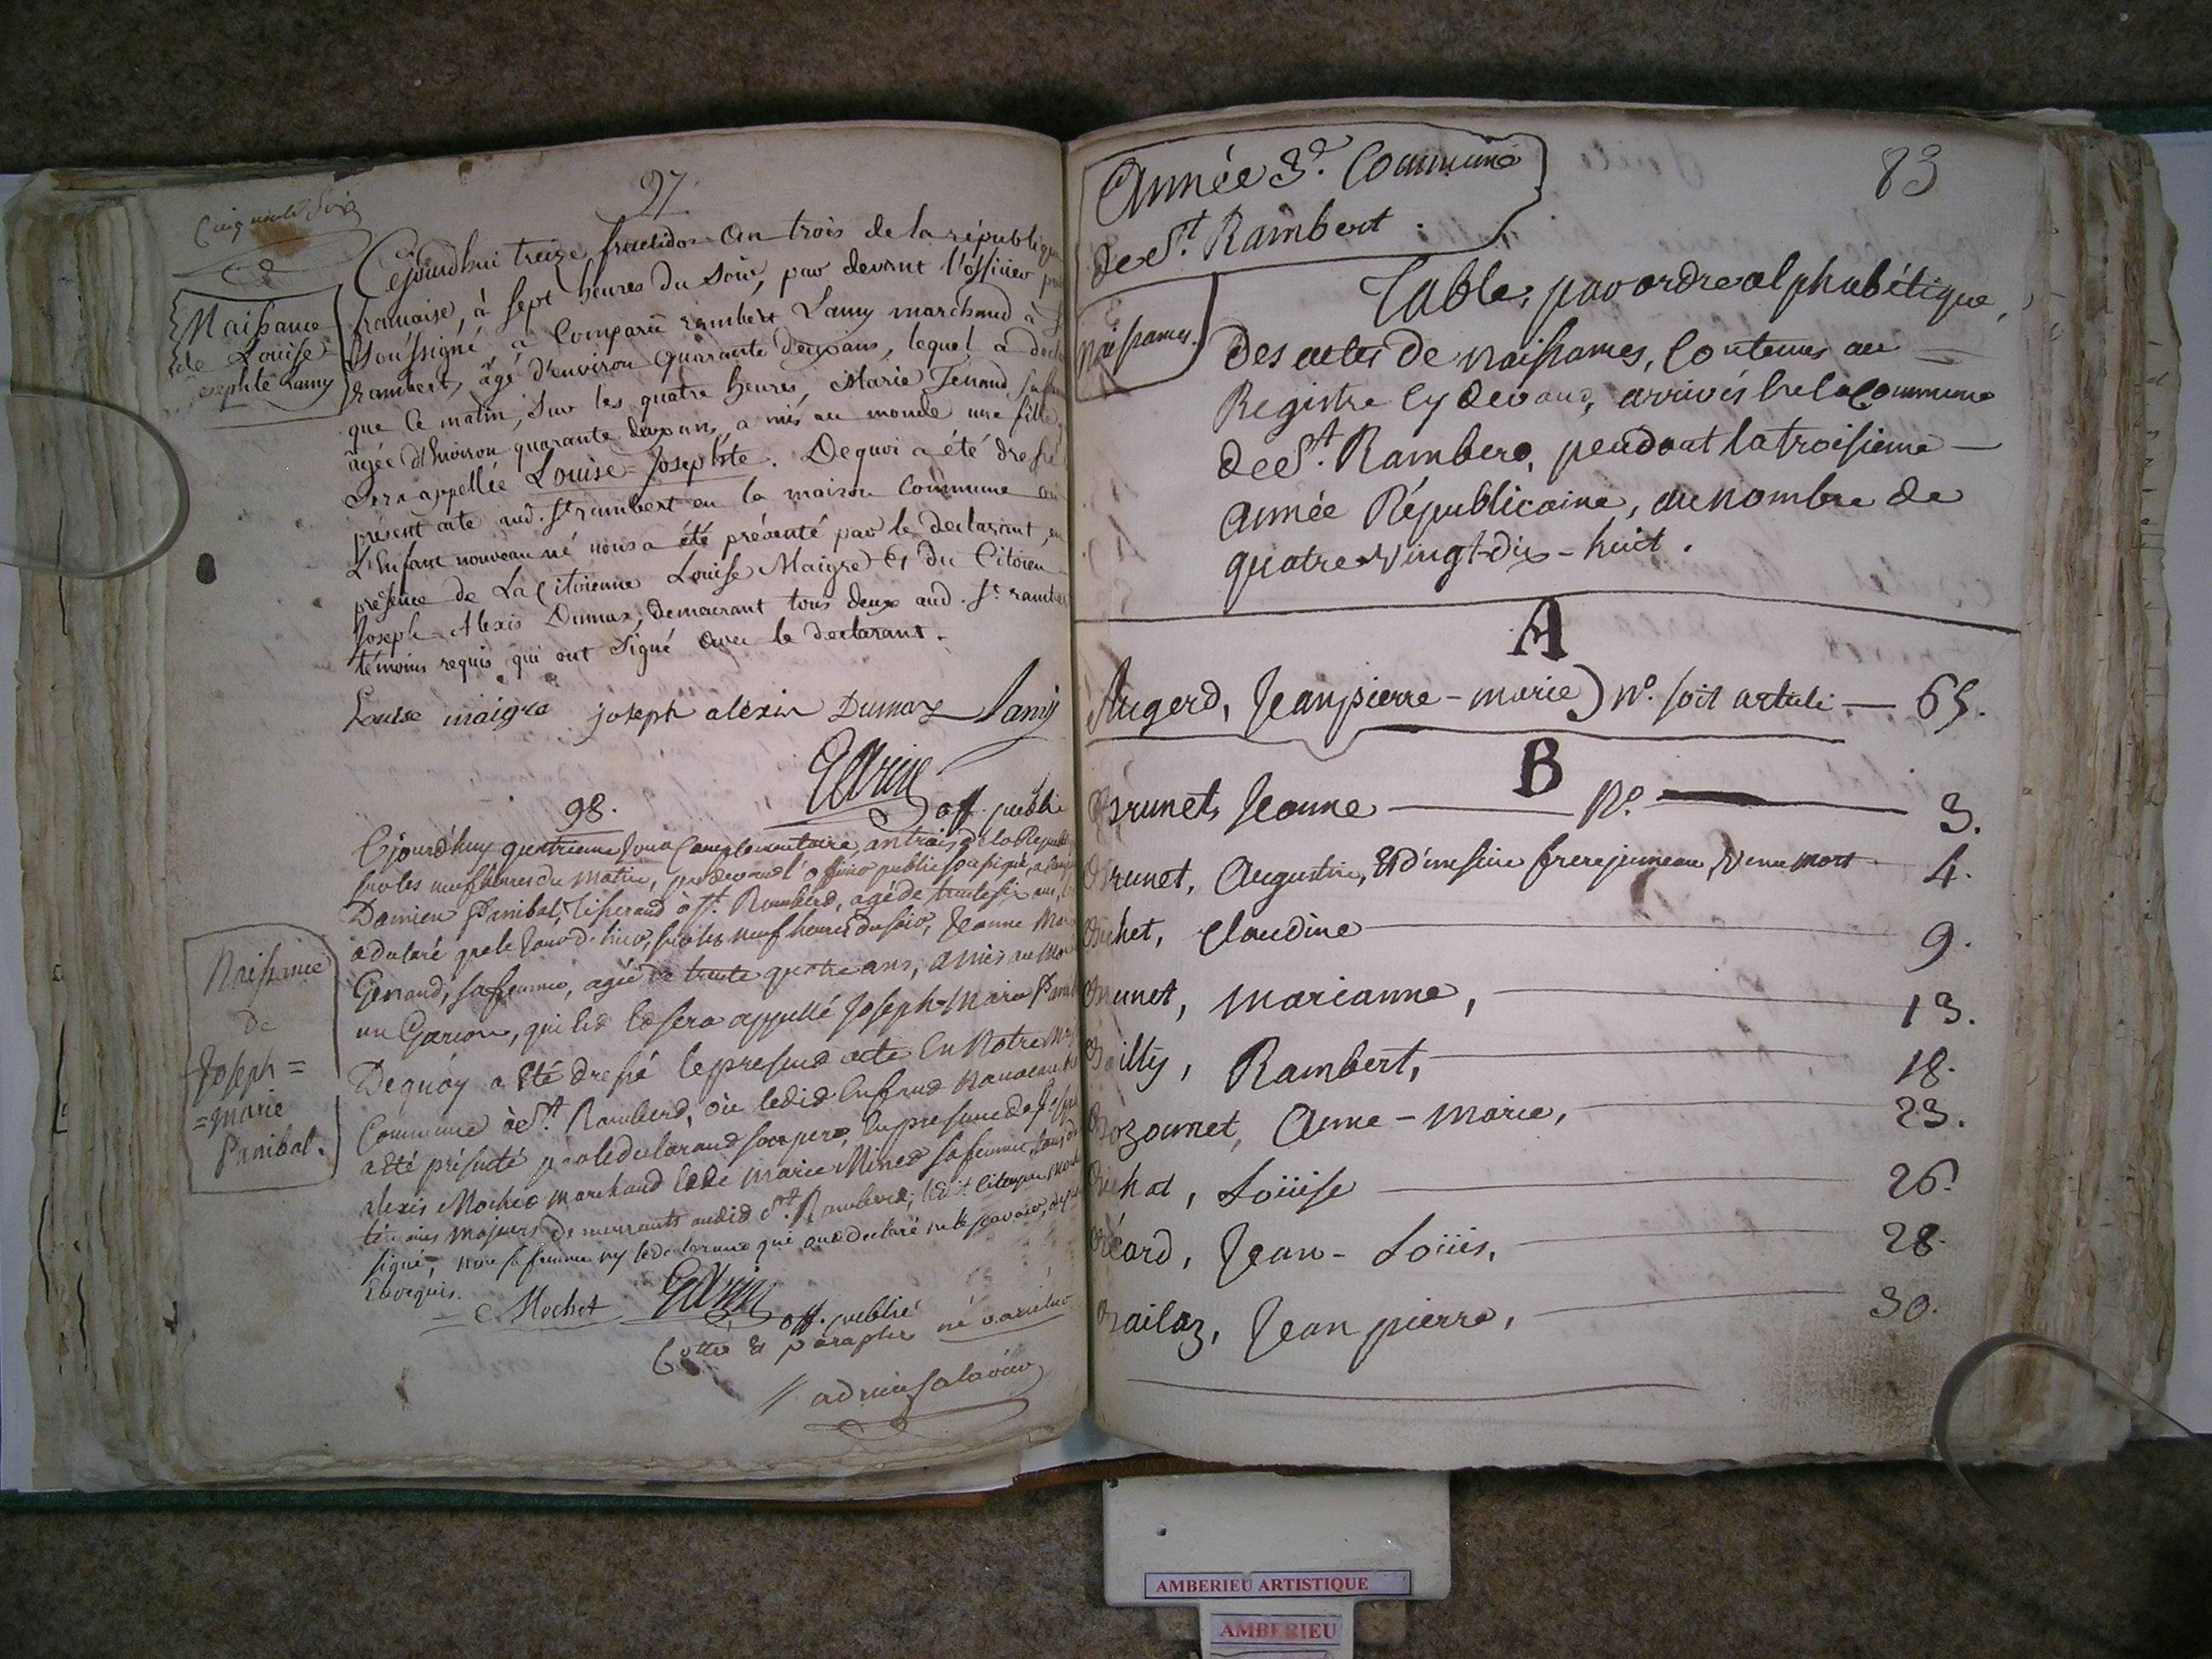 97.
Naissance
de Louise
josephte Lamy
Cejourdhui treize fructidor an trois de la république
francaise, à sept heures du soir, par devant l'officier
soussigné a comparu rambert Lamy marchand à
rambert, âgé d'environ quarante deux ans, lequel a
que ce matin, sur les quatre heures, Marie
âgée d'environ quarante deux ans, a mis au monde une fille
sera appellée Louise=Josephte. Dequoi a été dressé
présent acte aud. St rambert en la maison commune
L'Enfant nouveau né nous a été présenté par le declarant,
présence de La Citoienne Louise Maigre Et du Citoien
Joseph=Alexis Dumas, demeurant tous deux aud. St
témoins requis qui ont signé avec le declarant.
Louise maigre joseph alexis Dumas Lamy
off. public
98.
Naissance
De
Joseph=
=marie
Panibal.
Cejourdhuy quatrieme jour Complementaire, an trois de la
sur les neuf heures du matin, pardevant l'officier public soussigné, a
Damien Panibal, Tisserand a St. Rambert, agé de trente six ans,
a declaré que le jour d'hier, sur les neuf heures du soir, Jeanne
Genand, sa femme, agée de trente quatre ans, a mis au
un Garcon, qui sera appellé Joseph=Marie
Dequoy a Eté dressé le present acte En Notre
Commune de St. Rambert, où ledit Enfant
a été présenté par le declarant son pere, En presence de
Alexis Mochet marchand Et de marie sa femme,
témoins majeurs demeurants audit St. Rambert; ledit Citoyen
signé, non sa femme ny le declarant qui ont declaré ne le scavoir,
Enrequis.
Mochet off. public
Cotté Et paraphé né varietur
83
Année 3e. Commune
de St. Rambert.
Naissances.
Table, par ordre alphabétique,
des actes de naissances, Contenus au
Registre Cy devant, arrivés En la Commune
de St. Rambert, pendant la troisieme
année Républicaine, au nombre de
quatre-Vingt-dix-huit.
A
Augerd, Jean pierre-marie) No. soit article — 65.
B
Brunet, Jeanne — No. — 3.
Brunet, Augustin, Et d'un sien frere jumeau, Venu mort 4.
Claudine — 9.
Brunet, Marianne, — 13.
Bailly, Rambert, — 18.
Bozonnet, Anne-Marie, — 23.
Loüise — 26.
Jean-Loüis, — 28.
Jean pierre, — 30.
AMBERIEU ARTISTIQUE
AMBERIEU